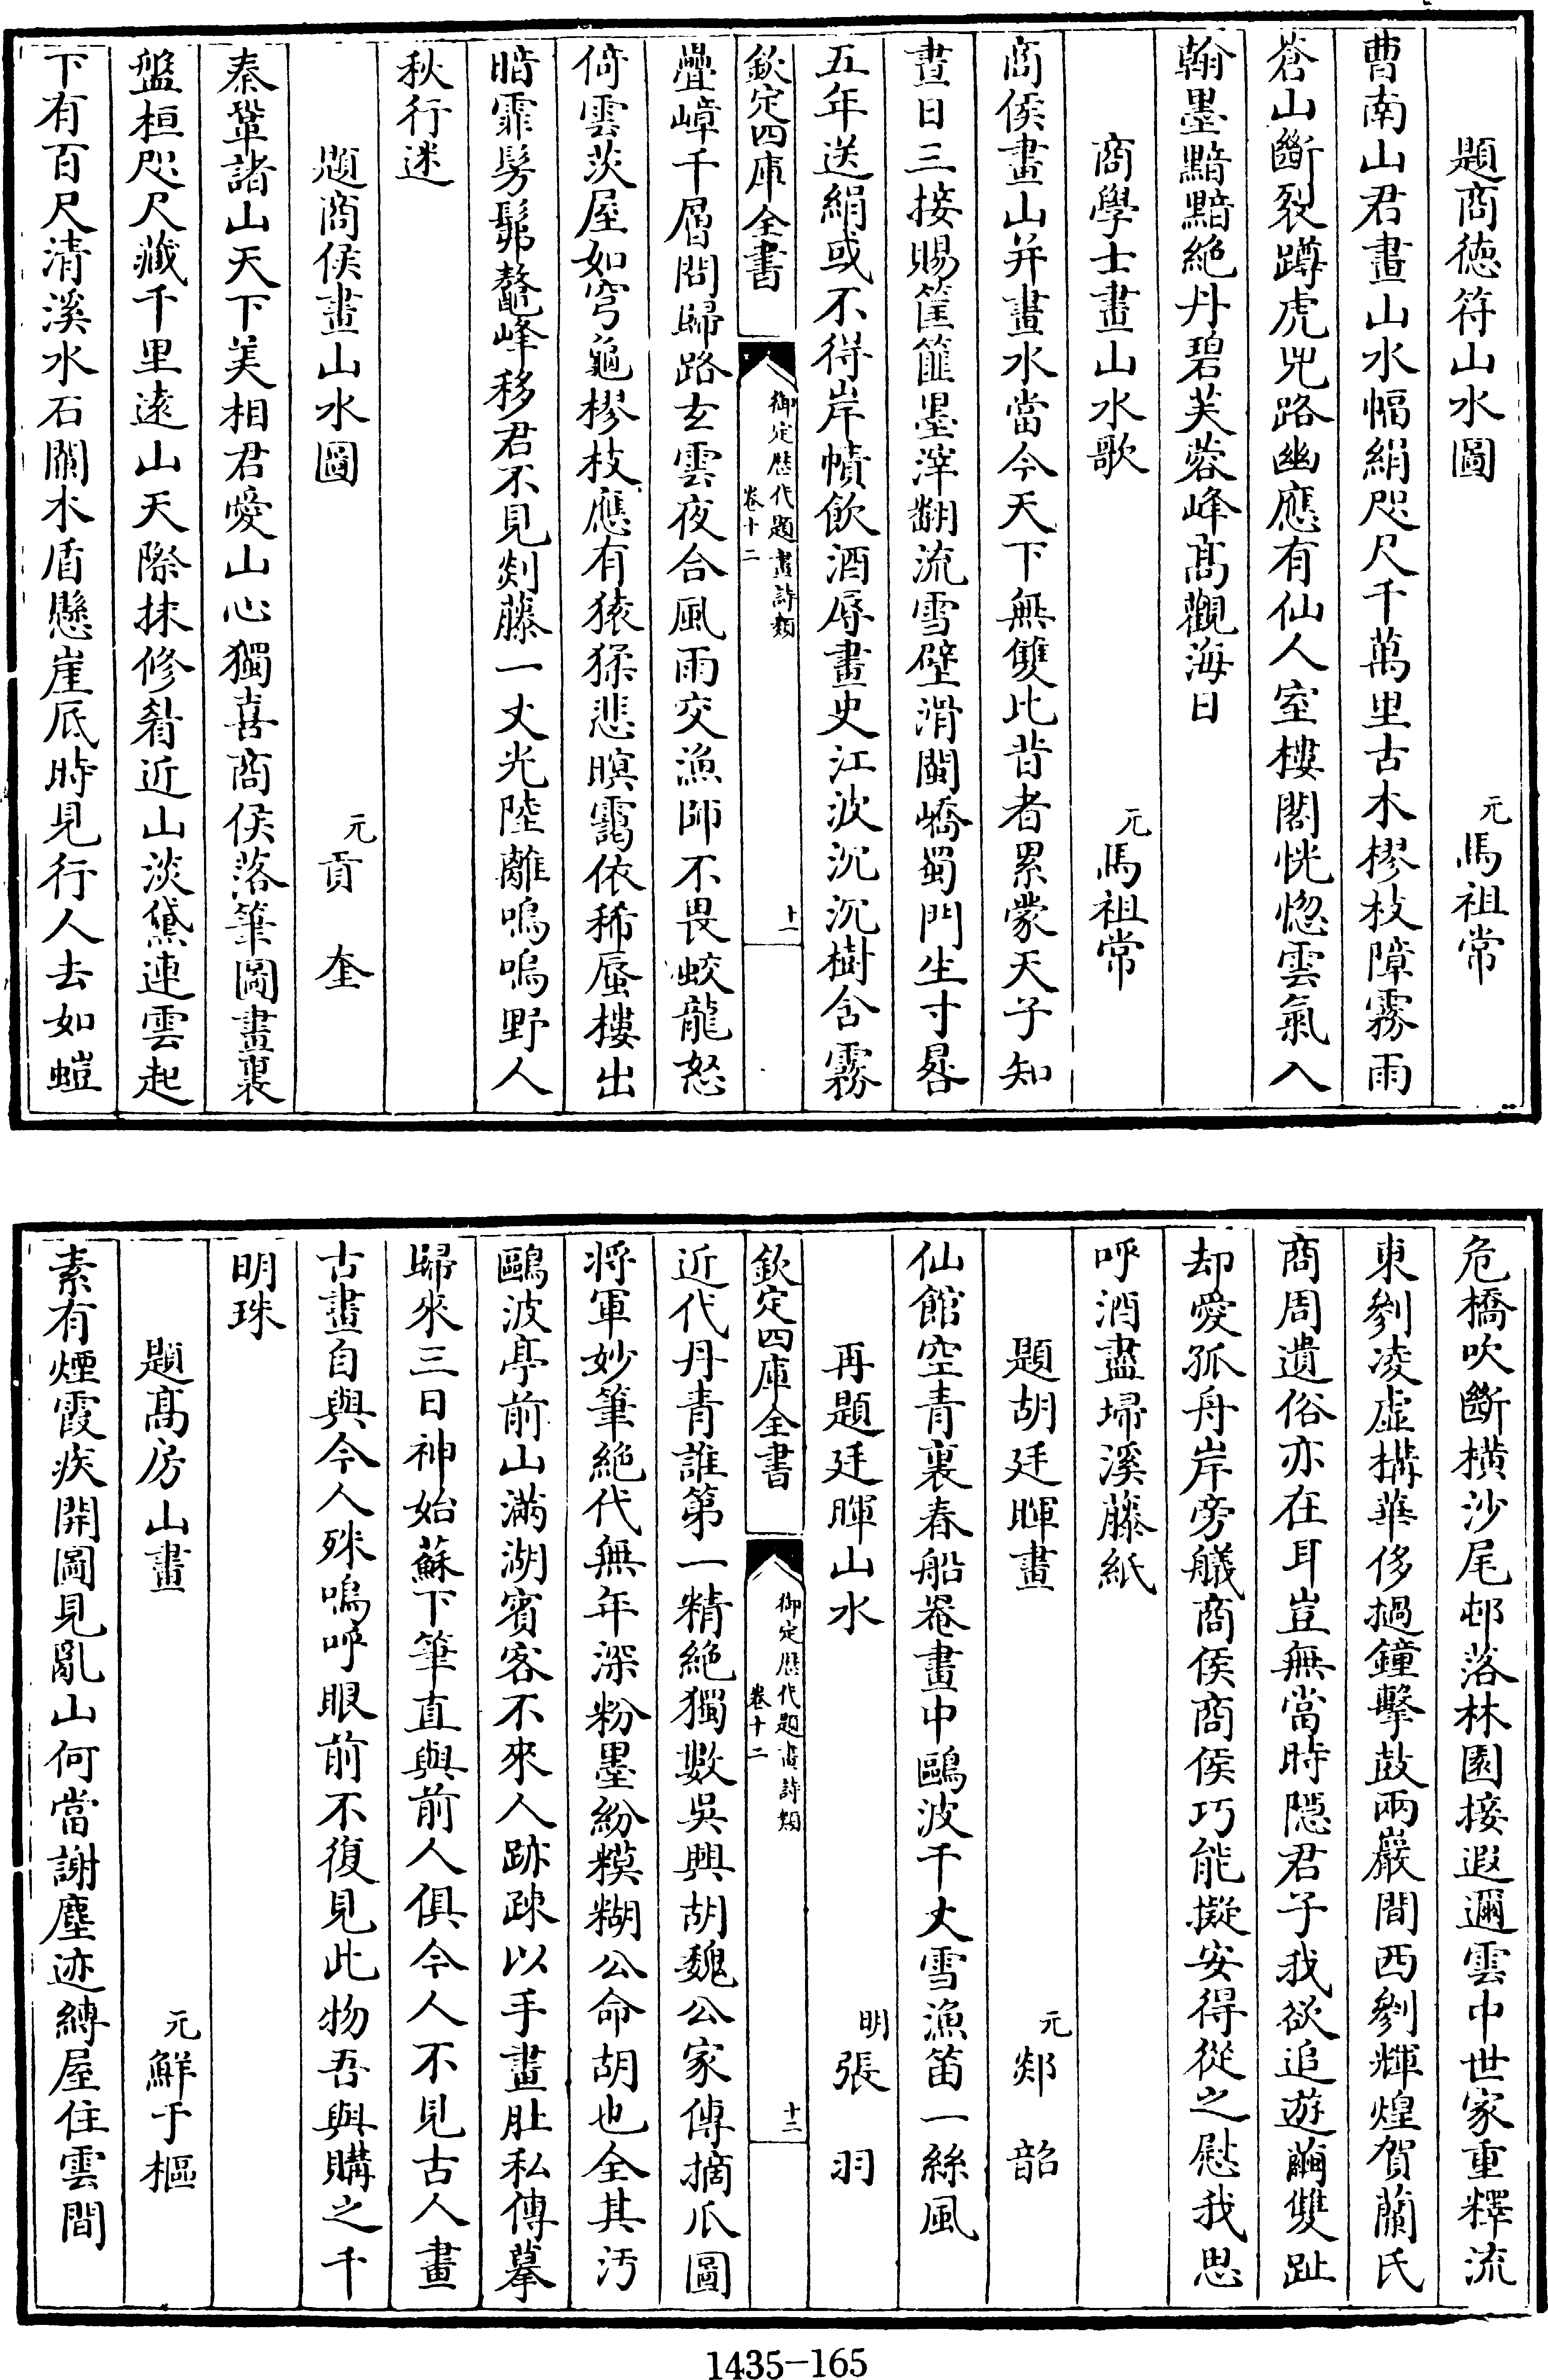 題商徳符山水圖　元馬祖常
曹南山君畫山水幅絹咫尺千萬里古木樛枝障霧雨
蒼山斷裂蹲虎兕路幽應有仙人室樓閣恍惚雲氣入
翰墨黯黯絶丹碧芙蓉峰髙觀海日
商學士畫山水歌　元馬祖常
商侯畫山并畫水當今天下無雙比昔者累蒙天子知
晝日三接賜筐篚墨滓翻流雪壁滑閩嶠蜀門生寸晷
五年送絹或不得岸幘飲酒辱畫史江波沉沉樹含霧
欽定四庫全書
御定歴代題畫詩類
卷十二
十一
疊嶂千層閟歸路玄雲夜合風雨交漁師不畏蛟龍怒
倚雲茨屋如穹龜樛枝應有猿猱悲暝靄依稀蜃樓出
暗霏髣髴鼇峰移君不見剡藤一丈光陸離嗚嗚野人
秋行迷
題商侯畫山水圖　元貢　奎
秦鞏諸山天下美相君愛山心獨喜商侯落筆圖畫裏
盤桓咫尺藏千里逺山天際抹修眉近山淡黛連雲起
下有百尺清溪水石闌木盾懸崖底時見行人去如螘
危橋吹斷横沙尾邨落林園接遐邇雲中世家重釋流
東剹凌虚構華侈撾鐘擊鼓兩巖間西剹輝煌賀蘭氏
商周遺俗亦在耳豈無當時隠君子我欲追遊繭雙趾
却愛孤舟岸旁艤商侯商侯巧能擬安得從之慰我思
呼酒盡埽溪藤紙
題胡廷暉畫　元郯　韶
仙館空青裏春船罨畫中鷗波千丈雪漁笛一絲風
再題廷暉山水　明張　羽
欽定四庫全書
御定歴代題畫詩類
卷十二
十二
近代丹青誰第一精絶獨數吳興胡魏公家傳摘爪圖
將軍妙筆絶代無年深粉墨紛糢糊公命胡也全其汚
鷗波亭前山滿湖賓客不來人跡疎以手畫肚私傳摹
歸來三日神始蘇下筆直與前人俱今人不見古人畫
古畫自與今人殊嗚呼眼前不復見此物吾與購之千
明珠
題髙房山畫　元鮮于樞
素有煙霞疾開圖見亂山何當謝塵迹縛屋住雲間
1435-165